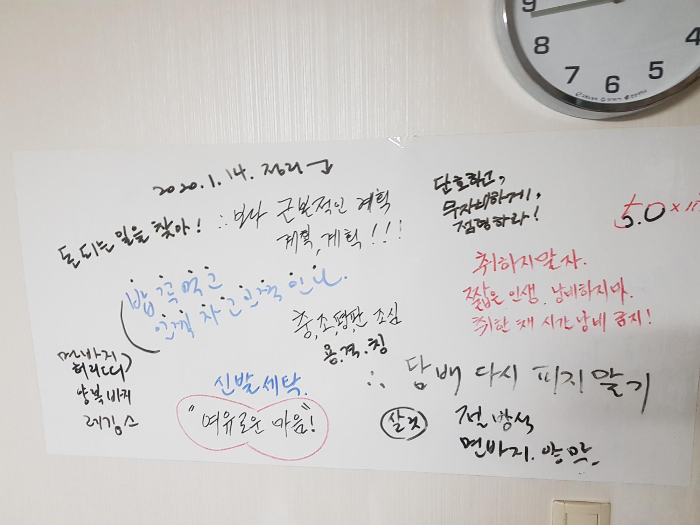 2020.1.14. 정리
돈 되는 일을 찾아! ∴ 보다 근본적인 계획
계획, 계획!!!
단호하고,
무자비하게,
집행하라!
5.0 ×
밥 꼭 먹고
취하지말자.
짧은 인생. 낭비하지마.
취한 채 시간낭비 금지!
중, 조, 평판 조심
용.격.칭
∴ 담배 다시 피지 말기
면바지
허리띠
양복바지
레깅스
신발세탁.
"여유로운 마음"!
살것
전방석
면바지. 양말.
8
7
6
5
4